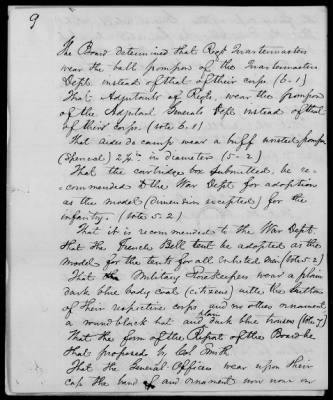 9
The Board determined that Regt Quartermasters
wear the ball pompon of the Quartermaster
Dept. instead of that of their corps (6-1)
That Adjutants of Regts. wear the pompon
of the Adjutant Generals Dept instead of that
of their corps. (vote 6.1)
That aides de camp wear a buff worsted pompon
(spherical) 2 in diameter (5-2)
That the cartridge box submitted be re-
commended to the War Dept. for adoption
as the model (dimension excepted) for the
infantry. (Vote 5.2)
That it is recommended to the War Dept.
that the French Bell tent be adopted as the
model for the tents for all enlisted men (Vote 5.2)
That Military Storekeepers wear a plain
dark blue body coat (citizens) with the button
of their respective corps and no other ornament
a round black hat and plain dark blue trousers (Vote 7)
That the form of the Report of the Board be
that proposed by Col Smith
That the General Officers wear upon their
cap the band and ornament now worn on